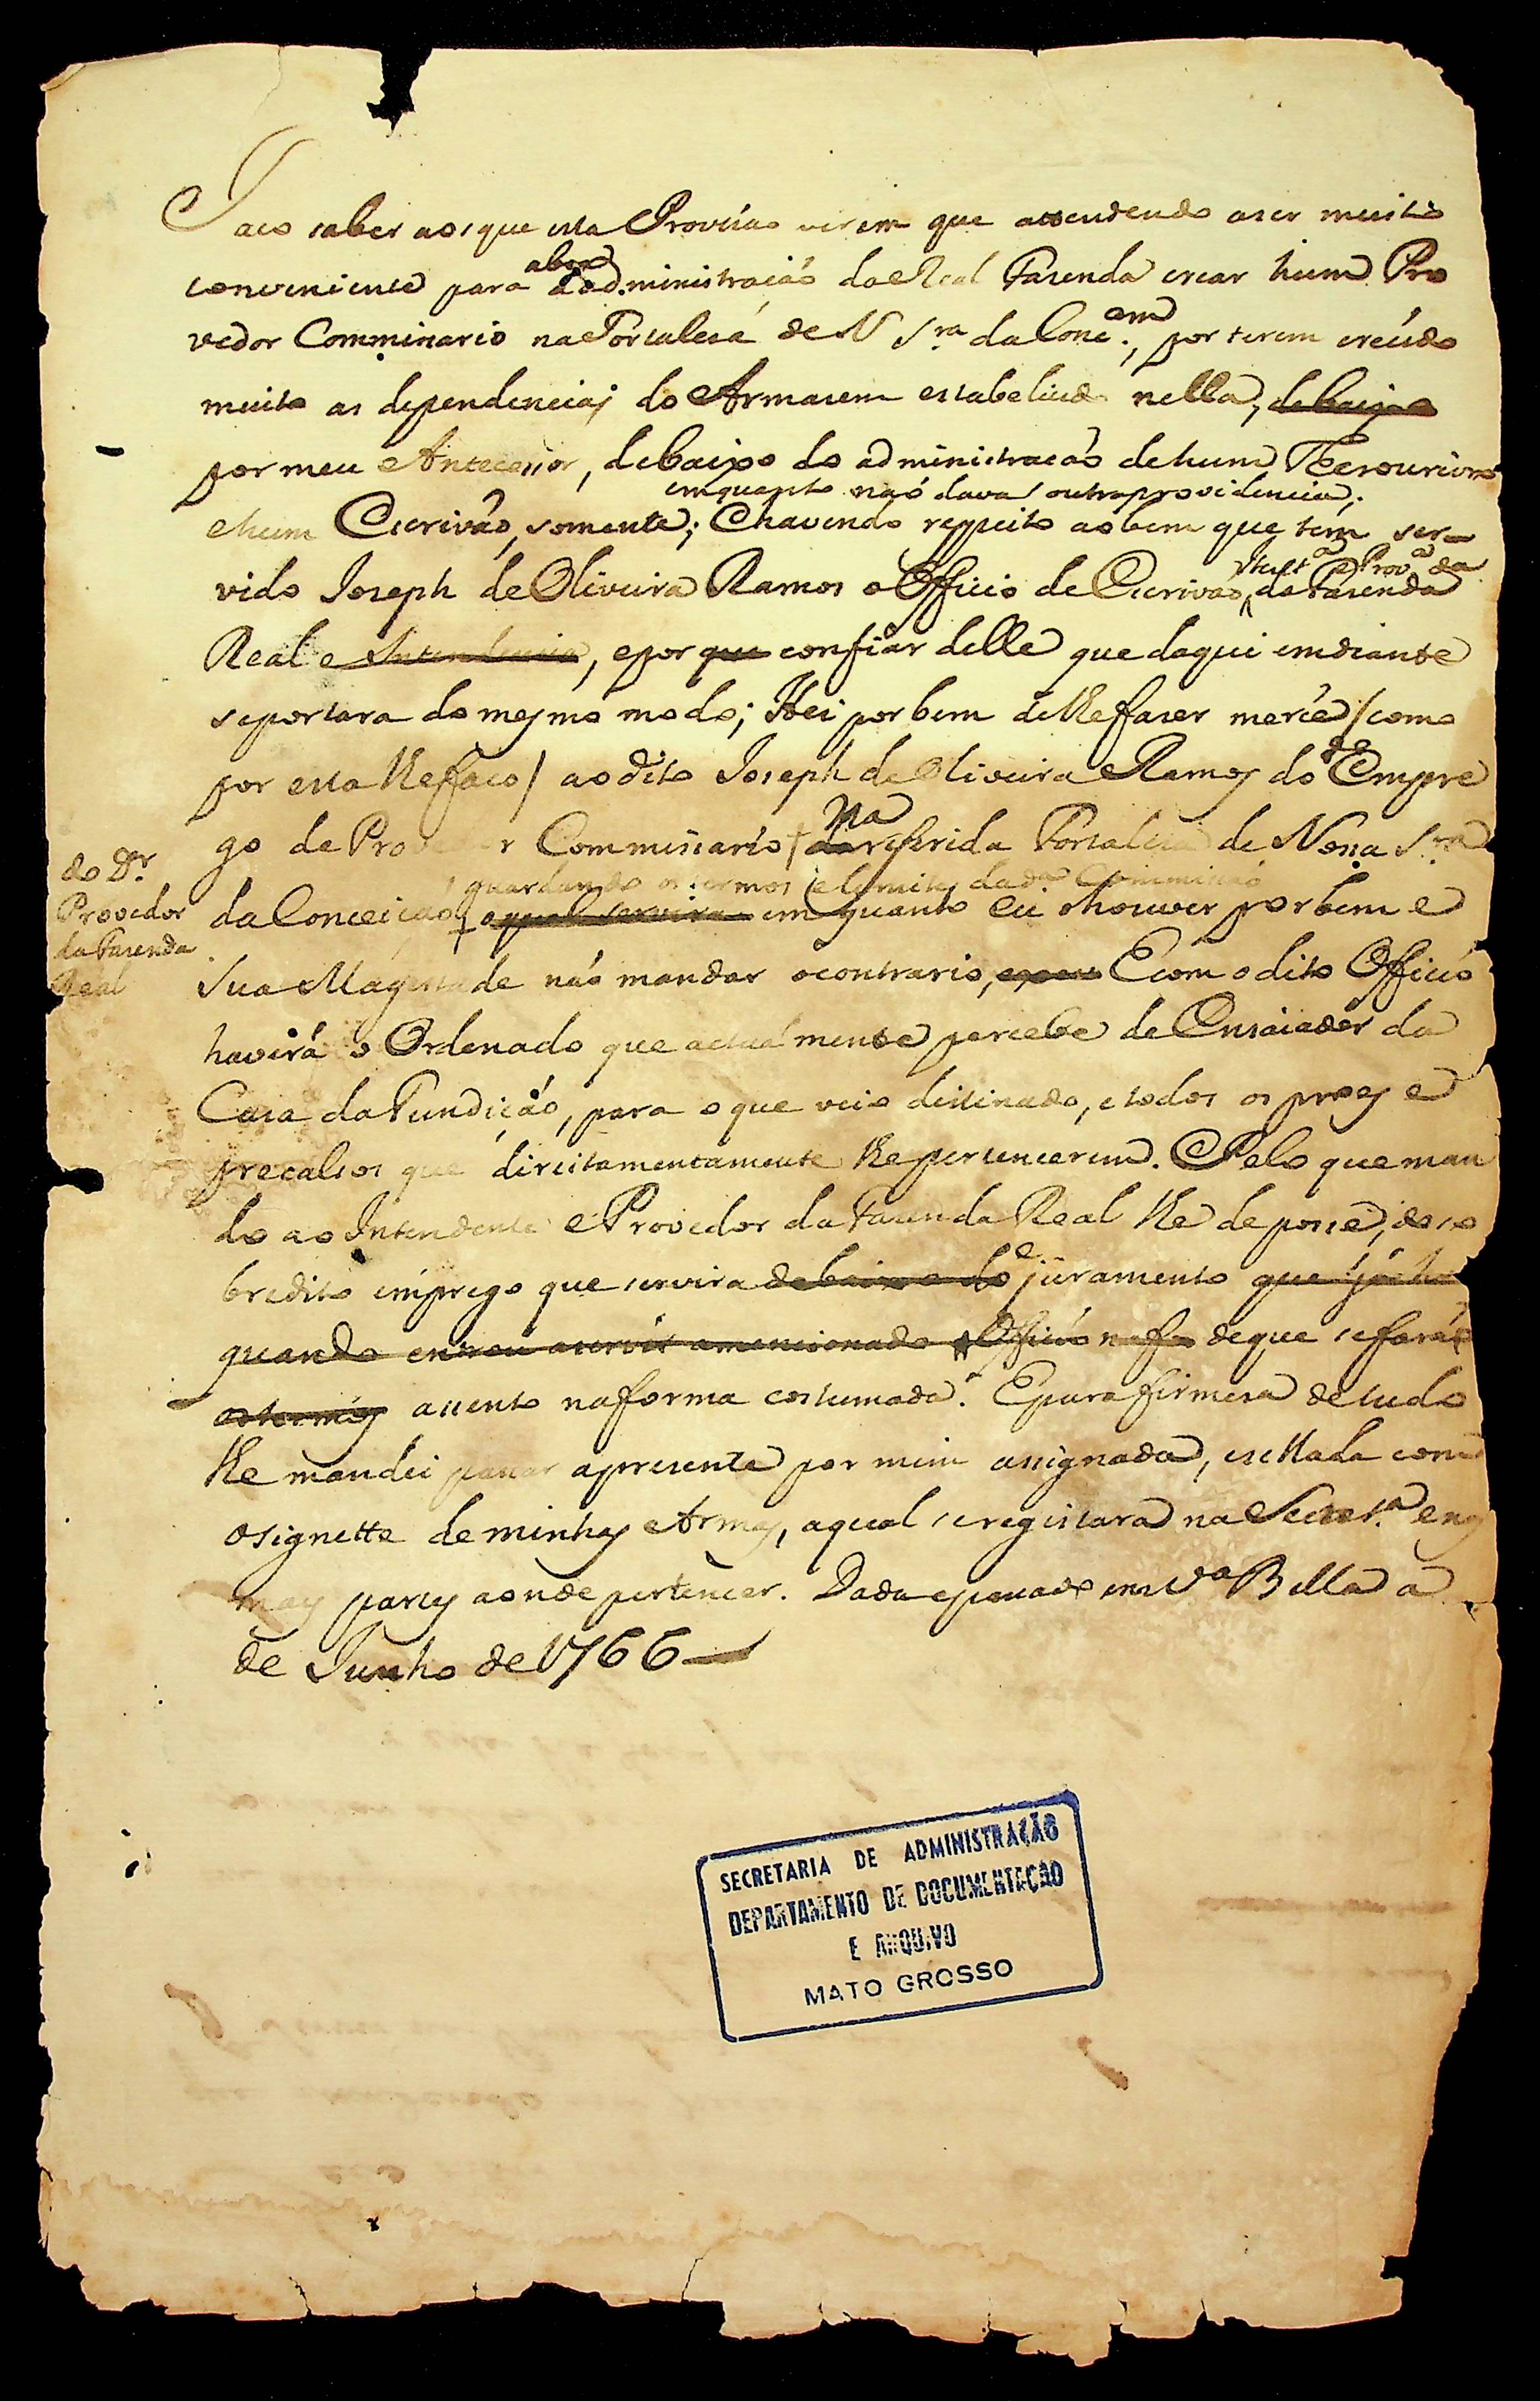 Faço saber aos que esta Provizão virem que attendendo aser muito
aboa
conveniente para a administração da Real Fazenda crear hum Pro
vedor Commissario na Fortaleza de N Sra. da Concam., por terem crecido
muito as dependencias do Armazem estabelicido nella, debaixo
por meu Antecessor, debaixo da administração de hum Thezoureiro
emquanto não dava outra providencia;
ehum Escrivão, somente; Ehavendo respeito aobem que tem ser-
vido Joseph de Oliveira Ramos o Officio de Escrivão da Fazenda
Real e Intendencia, epor que confiar delle que daqui emdiante
seportara do mesmo modo; Hei por bem de lhe fazer mercê / como
por esta lhe faço / aodito Joseph de Oliveira Ramos do Empre
na
go de Provedor Commissario da referida Fortaleza de Nossa Sra
do Dr.
Provedor
da Fazenda
Real
guardando os termos e lemites dada. Commissão
da Conceição oqual servira em quanto eu ohouver por bem e
Sua Magestade não mandar ocontrario, Ecom o dito Officio
haverá o Ordenado que actualmente percebe de Ensaiador da
Casa da Fundição, para o que veio destinado, etodos os proes e
precalsos que direitamentamente lhe pertencerem. Pelo que man
do ao Intendente e Provedor da Fazenda Real lhe de posse, do so
bredito emprego que servira debaixo do juramento que já ha
quando entrou aservir amencionado Officio nafa de que se fará
os termos assento naforma costumada. Epara firmeza de tudo
lhe mandei passar apresente por mim assignada, esellada com
osignette de minhas Armas, aqual seregistara na Secreta. e nas
mais partes aonde pertencer. Dada epassada em Va Bella a
de Junho de 1766
SECRETARIA DE ADMINISTRAÇÃO
DEPARTAMENTO DE DOCUMENTAÇÃO
E ARQUIVO
MATO GROSSO